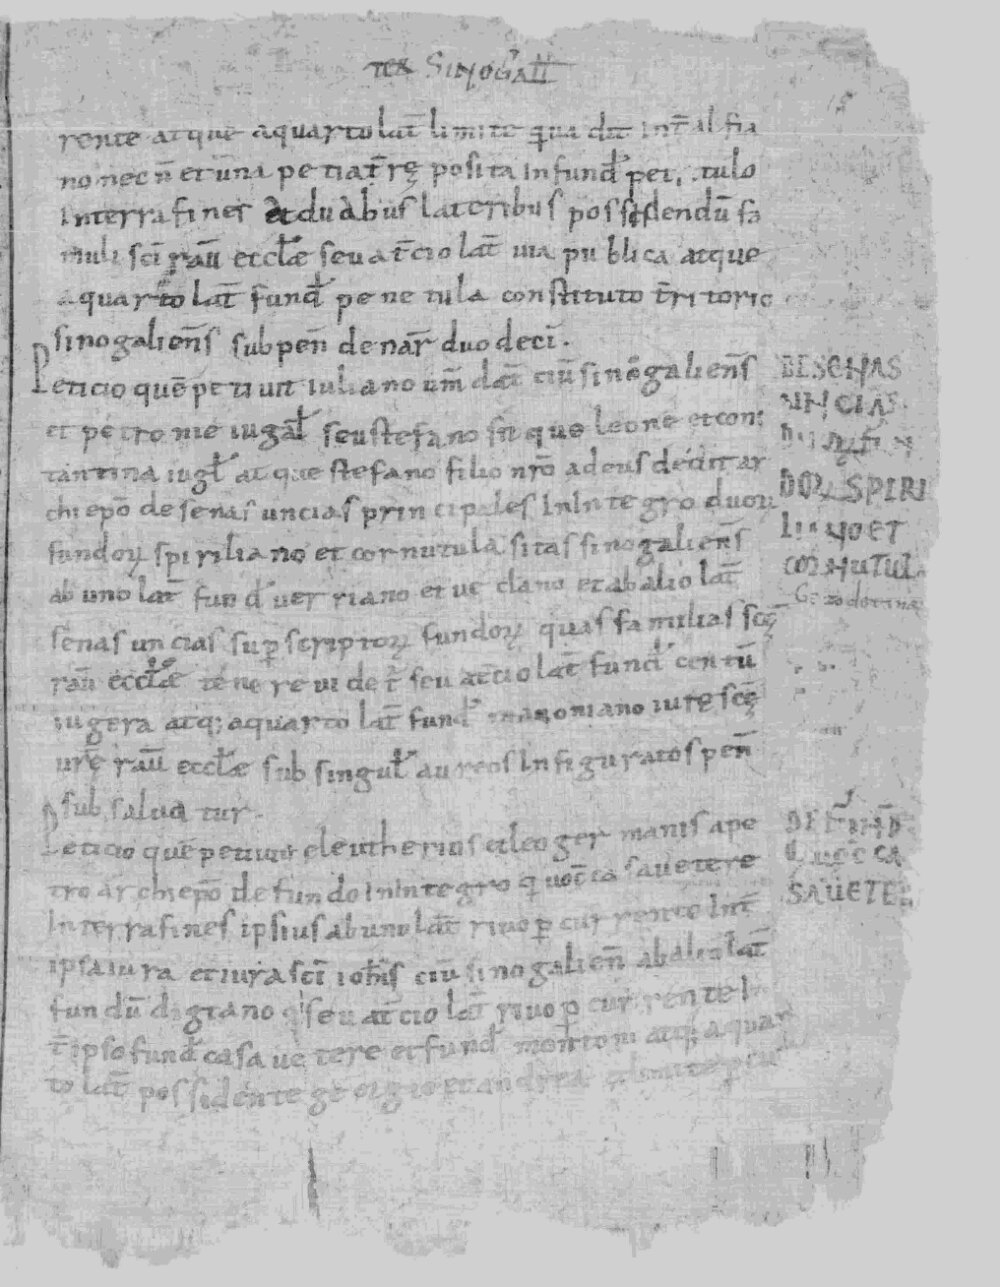 TER SINOGALL
rente atque aquarto lat̄ limite qua dit int̄ alfia
no nec n̄ et una petia t̄rę posita in fund pet tulo
Interra fines et duabus lateribus possidendū fa
muli sci rau ecclæ seu at̄cio lat̄ uia publica atque
aquarto lat̄ fund pene tula constituto t̄ritorio
sinogalieñs subpeñ denar̄ duodecī.
Peticio quē petiuit iuliano um̄ dat̄ ciū sinogalieñs
et petronie iugal seu stefano sn̄que leone et con
tantina iugl atque stefano filio nr̄o adeus dedit ar
chiep̄o de senas uncias principales In Integro duoꝝ
fundoꝝ spiriliano et cornutula sitas sinogalieñs
ab uno lat̄ fund uerriano et ueclano et abalio lat̄
senas uncias suprscriptoꝝ fundoꝝ quas familias scę
rau ecclæ tenere uidet̄ seu at̄cio lat̄ fund centū
iugera atq; aquarto lat̄ fund maroniano iurę scę
urę rau ecclæ sub singul aureos Infiguratos peñ
sub salua tur.
Peticio quē petiuit eleutherius et leo germanis ape
tro archiep̄o de fundo In Integro quoc̄ casauetere
Interrafines ipsius abuno lat̄ riuo ꝑcurrente Int̄
ipsa iura et iura scī ioh̄is ciū sinogalieñ abalio lat̄
fundū digiano q seu at̄cio lat̄ riuo ꝑcurrente In
t̄ ipso fund casa uetere et fund montoni atq; aquar
to lat̄ possidente georgio et andrea et limite ꝑcur
DESENAS
UNCIAS
DOꝝ SPIRI
LIANO ET
CORNUTUL
DE FUND
QUOC CA
SAUETER